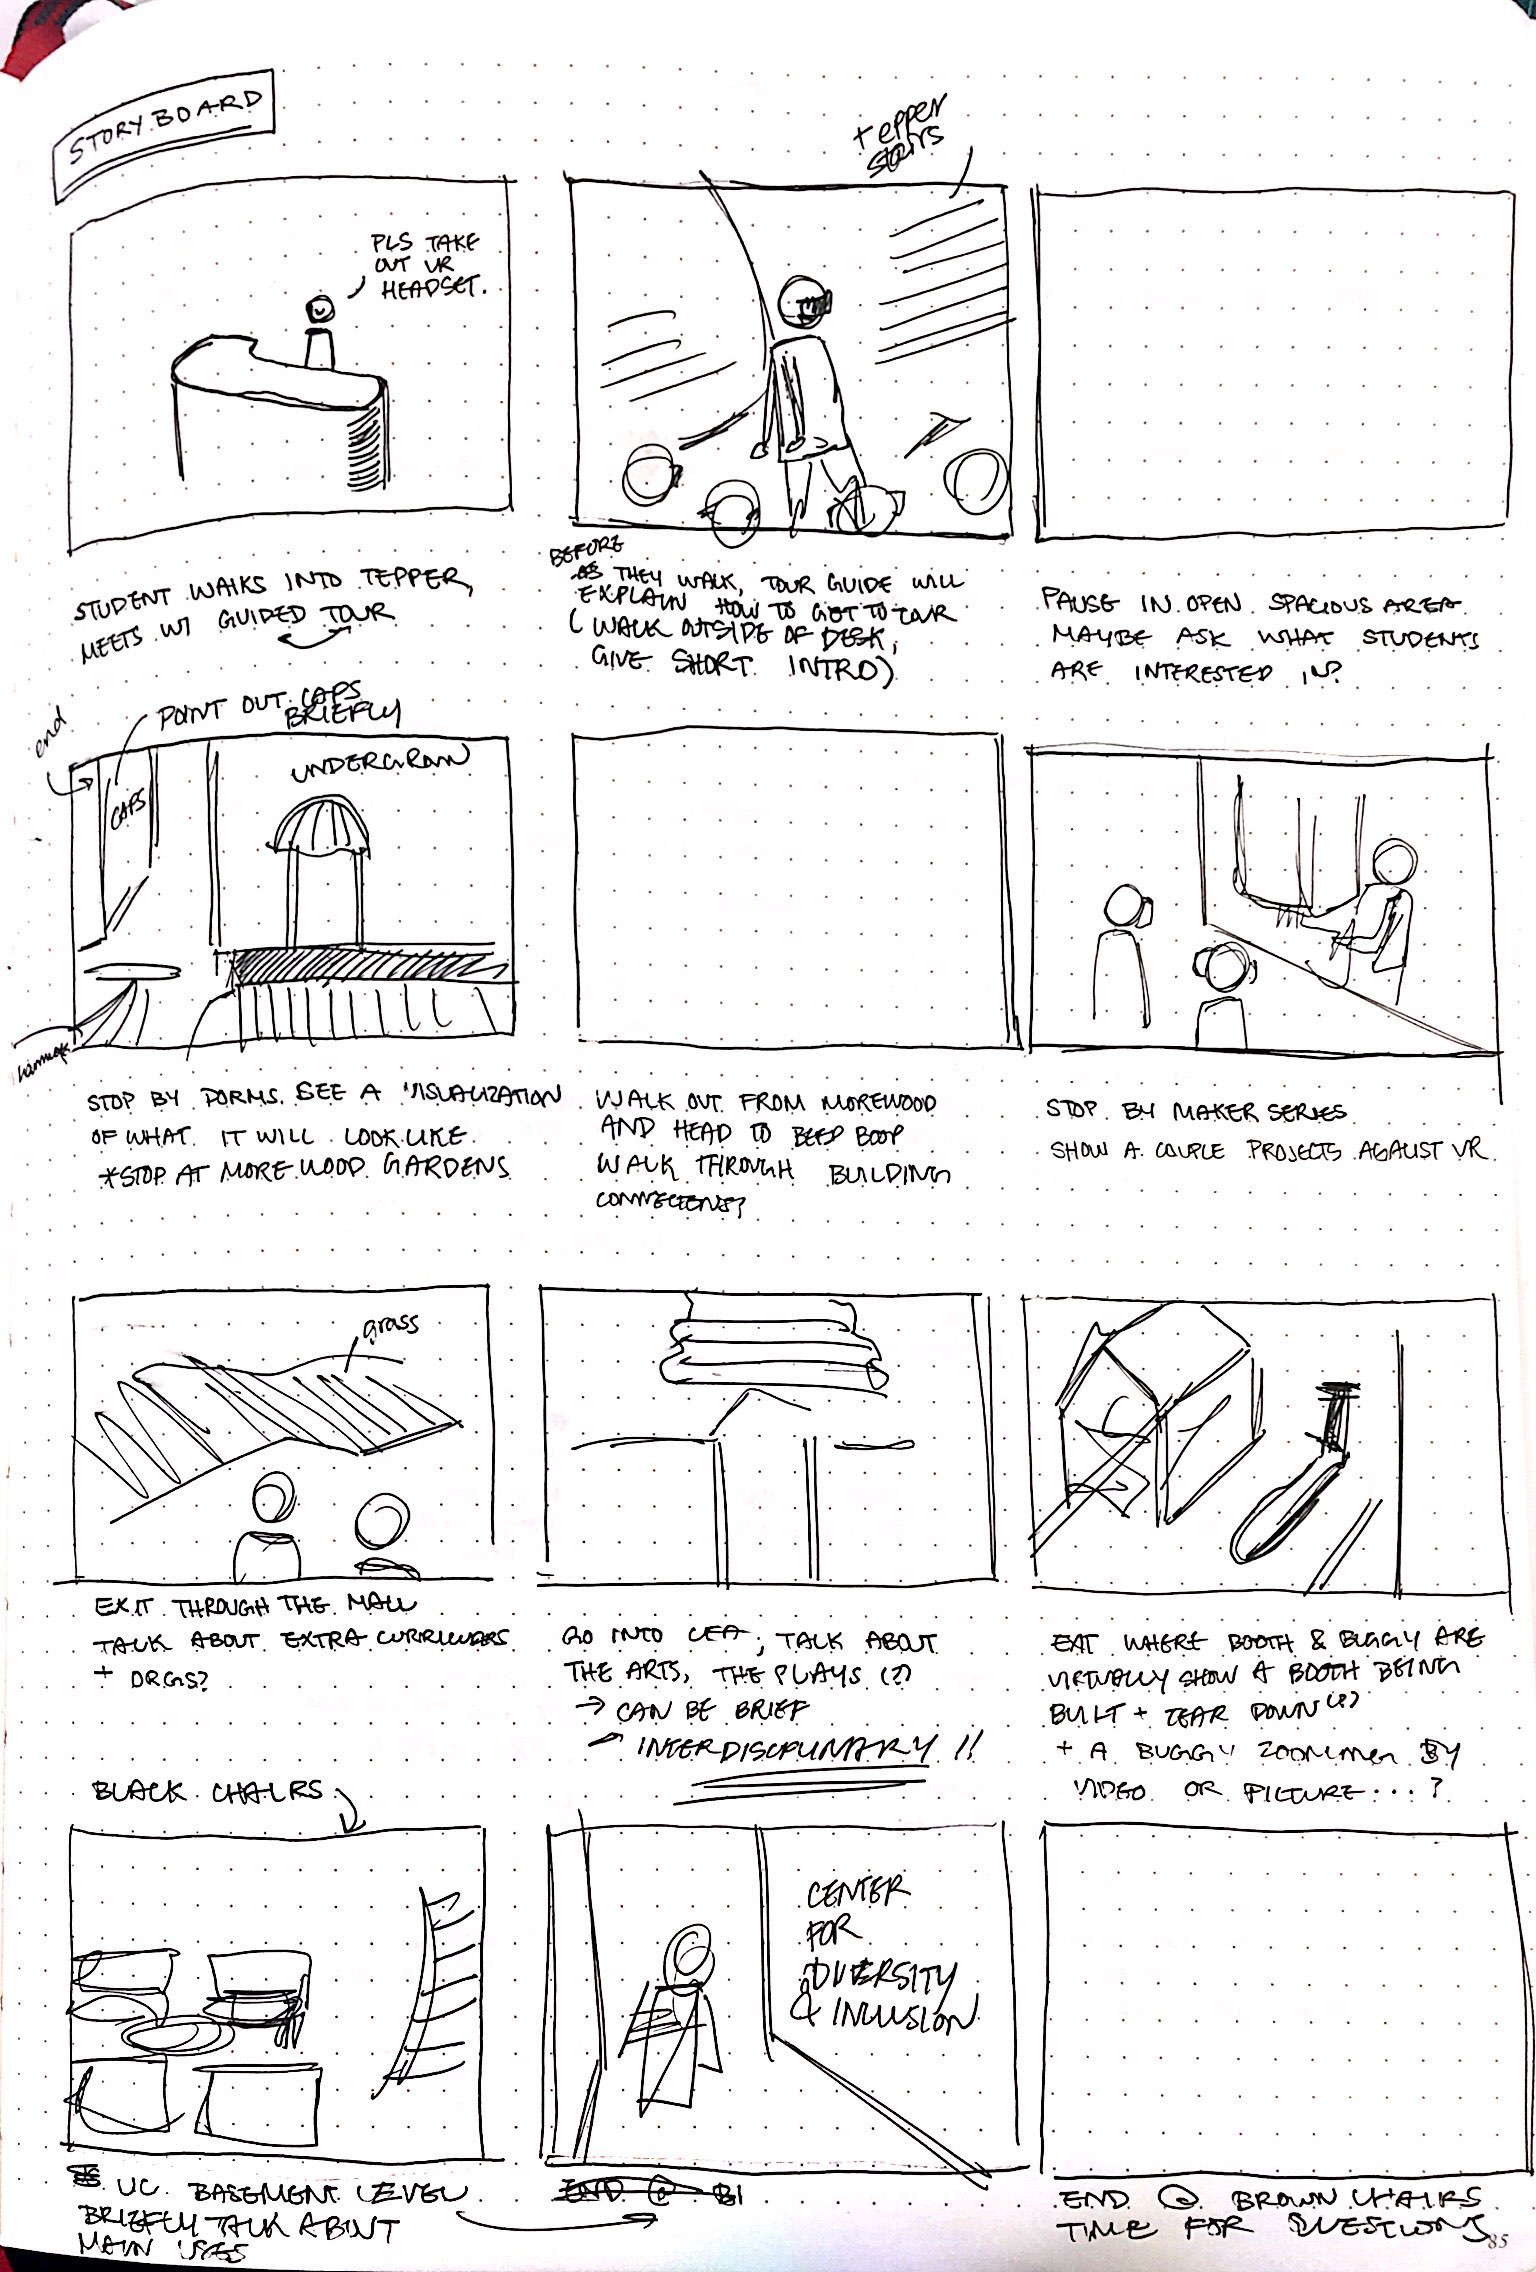 STORYBOARD
tepper
stairs
PLS TAKE
OUT VR
HEADSET.
STUDENT WALKS INTO TEPPER,
MEETS W/ GUIDED TOUR
BEFORE
AS THEY WALK, TOUR GUIDE WILL
EXPLAIN HOW TO GET TO TOUR
(WALK OUTSIDE OF DESK,
GIVE SHORT INTRO)
PAUSE IN OPEN SPACIOUS AREA
MAYBE ASK WHAT STUDENTS
ARE INTERESTED IN?
end
POINT OUT CAPS
BRIEFLY
CAPS
UNDERGRAD
STOP BY DORMS. SEE A VISUALIZATION
OF WHAT IT WILL LOOK LIKE
*STOP AT MOREWOOD GARDENS
WALK OUT FROM MOREWOOD
AND HEAD TO BEEP BOOP
WALK THROUGH BUILDING
CONNECTIONS?
STOP BY MAKER SERIES
SHOW A COUPLE PROJECTS AGAINST VR
grass
EXIT THROUGH THE MALL
TALK ABOUT EXTRA CURRICULARS
+ ORGS?
GO INTO CFA, TALK ABOUT
THE ARTS, THE PLAYS (?)
→ CAN BE BRIEF
INTERDISCIPLINARY !!
EXIT WHERE BOOTH & BUGGY ARE
VIRTUALLY SHOW A BOOTH BEING
BUILT + TEAR DOWN (?)
+ A BUGGY ZOOMING BY
VIDEO OR PICTURE...?
BLACK CHAIRS
UC BASEMENT LEVEL
BRIEFLY TALK ABOUT
MAIN USES
CENTER
FOR
DIVERSITY
& INCLUSION
END @ BI
END @ BROWN CHAIRS
TIME FOR QUESTIONS
85